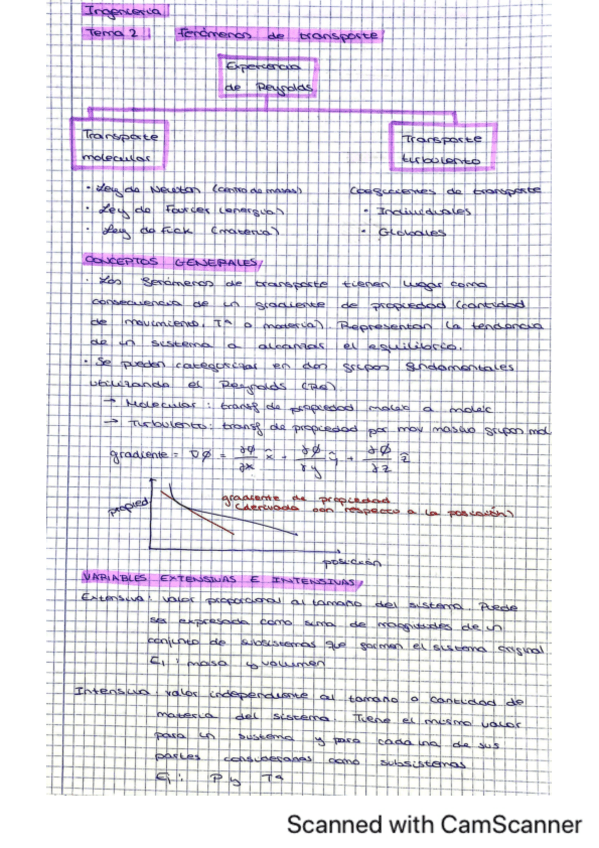 Ingeniería
Tema 2 Fenómenos de transporte
Experiencia
de Reynolds
Transporte
molecular
Transporte
turbulento
· Ley de Newton (cantid de movim)
· Ley de Fourier (energía)
· Ley de Fick (materia)
Coeficientes de transporte
· Individuales
· Globales
CONCEPTOS GENERALES
· Los fenómenos de transporte tienen lugar como
consecuencia de un gradiente de propiedad (cantidad
de movimiento, Tª o materia). Representan la tendencia
de un sistema a alcanzar el equilibrio.
· Se pueden categorizar en dos grupos fundamentales
utilizando el Reynolds (Re)
→ Molecular: transf de propiedad moléc a moléc
→ Turbulento: transf de propiedad por mov masivo grupos mol
gradiente = ∇φ = ∂φ/∂x x̂ + ∂φ/∂y ŷ + ∂φ/∂z ẑ
propied
gradiente de propiedad
(derivada con respecto a la posición)
posición
VARIABLES EXTENSIVAS E INTENSIVAS
Extensiva: valor proporcional al tamaño del sistema. Puede
ser expresada como suma de magnitudes de un
conjunto de subsistemas que formen el sistema original
Ej: masa y volumen
Intensiva: valor independiente al tamaño o cantidad de
materia del sistema. Tiene el mismo valor
para un sistema y para cada una de sus
partes consideradas como subsistemas
Ej: P y Tª
Scanned with CamScanner